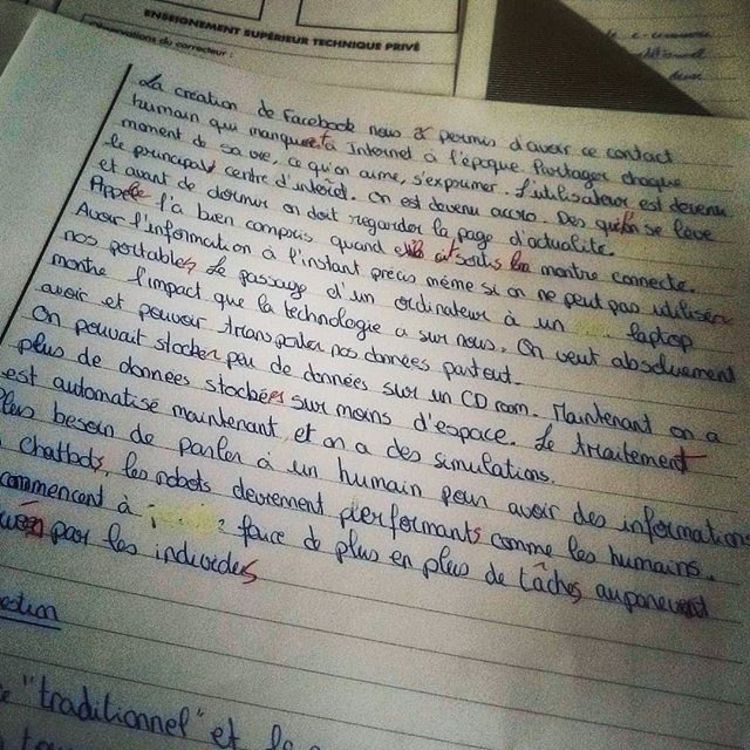 ENSEIGNEMENT SUPÉRIEUR TECHNIQUE PRIVÉ
Observations du correcteur :
La création de Facebook nous a permis d'avoir ce contact
humain qui manquait à Internet à l'époque. Partager chaque
moment de sa vie, ce qu'on aime, s'exprimer. L'utilisateur est devenu
le principal centre d'intérêt. On est devenu accro. Dès qu'on se lève
et avant de dormir on doit regarder la page d'actualité.
Apple l'a bien compris quand sortis la montre connecté.
Avoir l'information à l'instant précis même si on ne peut pas utiliser
nos portables. Le passage d'un ordinateur à un laptop
montre l'impact que la technologie a sur nous. On veut absoluement
avoir et pouvoir transporter nos données partout.
On pouvait stocker peu de données sur un CD room. Maintenant on a
plus de données stockées sur moins d'espace. Le traitement
est automatisé maintenant et on a des simulations.
Plus besoin de parler à un humain pour avoir des informations
chatbots, les robots deviennent performants comme les humains.
commencent à faire de plus en plus de tâches
par les individus
estion
"traditionnel" et
e-commerce